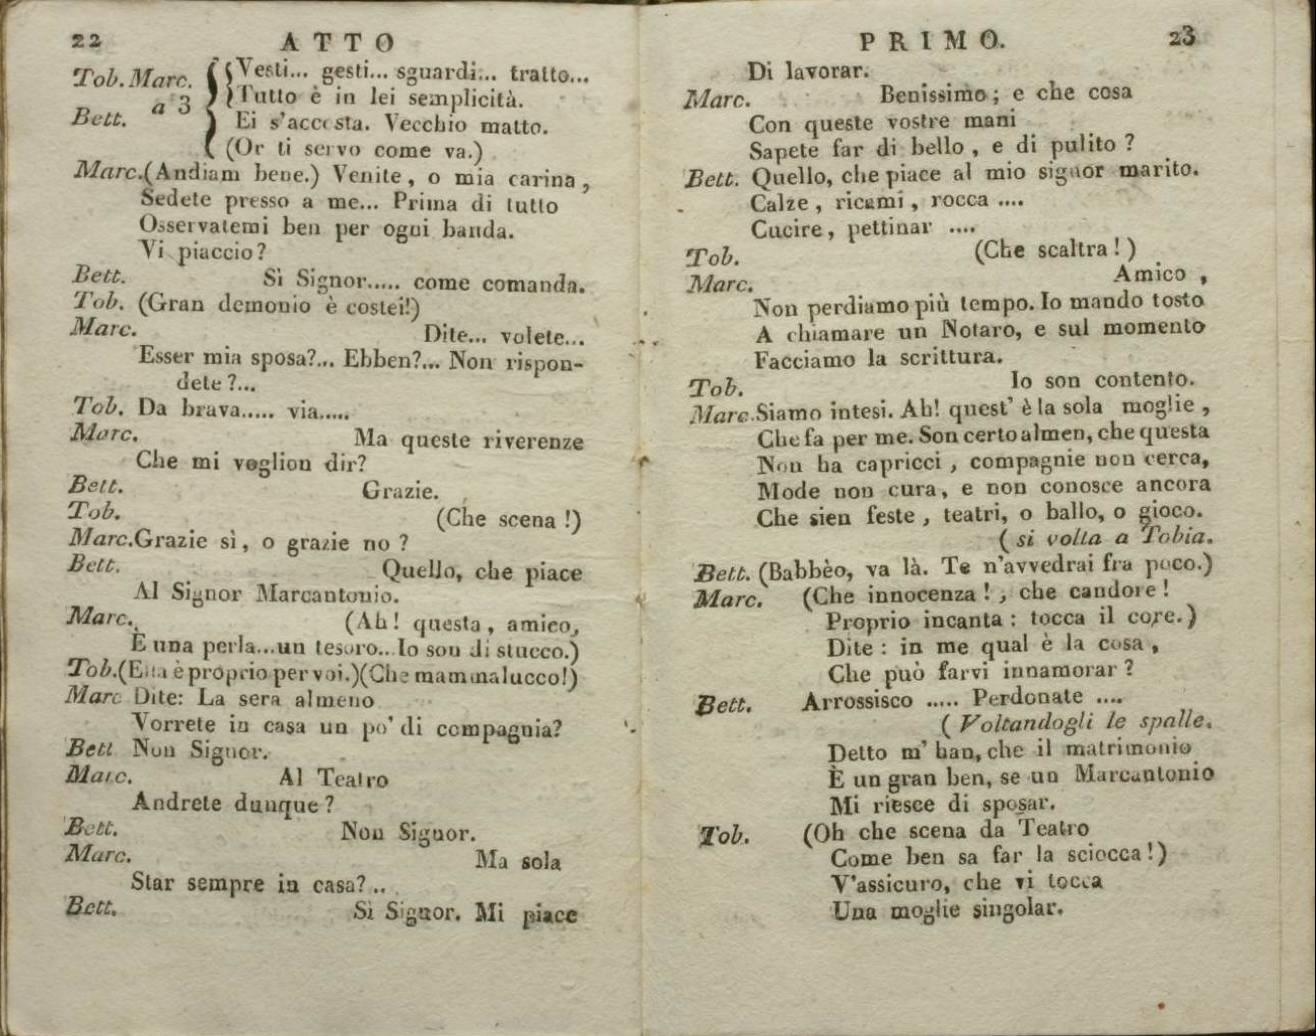 22 ATTO
Tob. Marc. Vesti... gesti... sguardi... tratto...
a 3 Tutto è in lei semplicità.
Bett. Ei s'accosta. Vecchio matto.
(Or ti servo come va.)
Marc.(Andiam bene.) Venite, o mia carina,
Sedete presso a me... Prima di tutto
Osservatemi ben per ogni banda.
Vi piaccio?
Bett. Sì Signor..... come comanda.
Tob. (Gran demonio è costei!)
Marc. Dite... volete...
Esser mia sposa?... Ebben?... Non rispon-
dete?...
Tob. Da brava..... via.....
Marc. Ma queste riverenze
Che mi voglion dir?
Bett. Grazie.
Tob. (Che scena!)
Marc.Grazie sì, o grazie no?
Bett. Quello, che piace
Al Signor Marcantonio.
Marc. (Ah! questa, amico,
È una perla...un tesoro...Io son di stucco.)
Tob.(Ella è proprio per voi.)(Che mammalucco!)
Marc Dite: La sera almeno
Vorrete in casa un po' di compagnia?
Bett Non Signor.
Marc. Al Teatro
Andrete dunque?
Bett. Non Signor.
Marc. Ma sola
Star sempre in casa?..
Bett. Sì Signor. Mi piace
PRIMO. 23
Di lavorar.
Marc. Benissimo; e che cosa
Con queste vostre mani
Sapete far di bello, e di pulito?
Bett. Quello, che piace al mio signor marito.
Calze, ricami, rocca ....
Cucire, pettinar ....
Tob. (Che scaltra!)
Marc. Amico,
Non perdiamo più tempo. Io mando tosto
A chiamare un Notaro, e sul momento
Facciamo la scrittura.
Tob. Io son contento.
Marc.Siamo intesi. Ah! quest' è la sola moglie,
Che fa per me. Son certo almen, che questa
Non ha capricci, compagnie non cerca,
Mode non cura, e non conosce ancora
Che sien feste, teatri, o ballo, o gioco.
(si volta a Tobia.
Bett. (Babbèo, va là. Te n'avvedrai fra poco.)
Marc. (Che innocenza!, che candore!
Proprio incanta: tocca il core.)
Dite: in me qual è la cosa,
Che può farvi innamorar?
Bett. Arrossisco ..... Perdonate ....
(Voltandogli le spalle.
Detto m' han, che il matrimonio
È un gran ben, se un Marcantonio
Mi riesce di sposar.
Tob. (Oh che scena da Teatro
Come ben sa far la sciocca!)
V'assicuro, che vi tocca
Una moglie singolar.